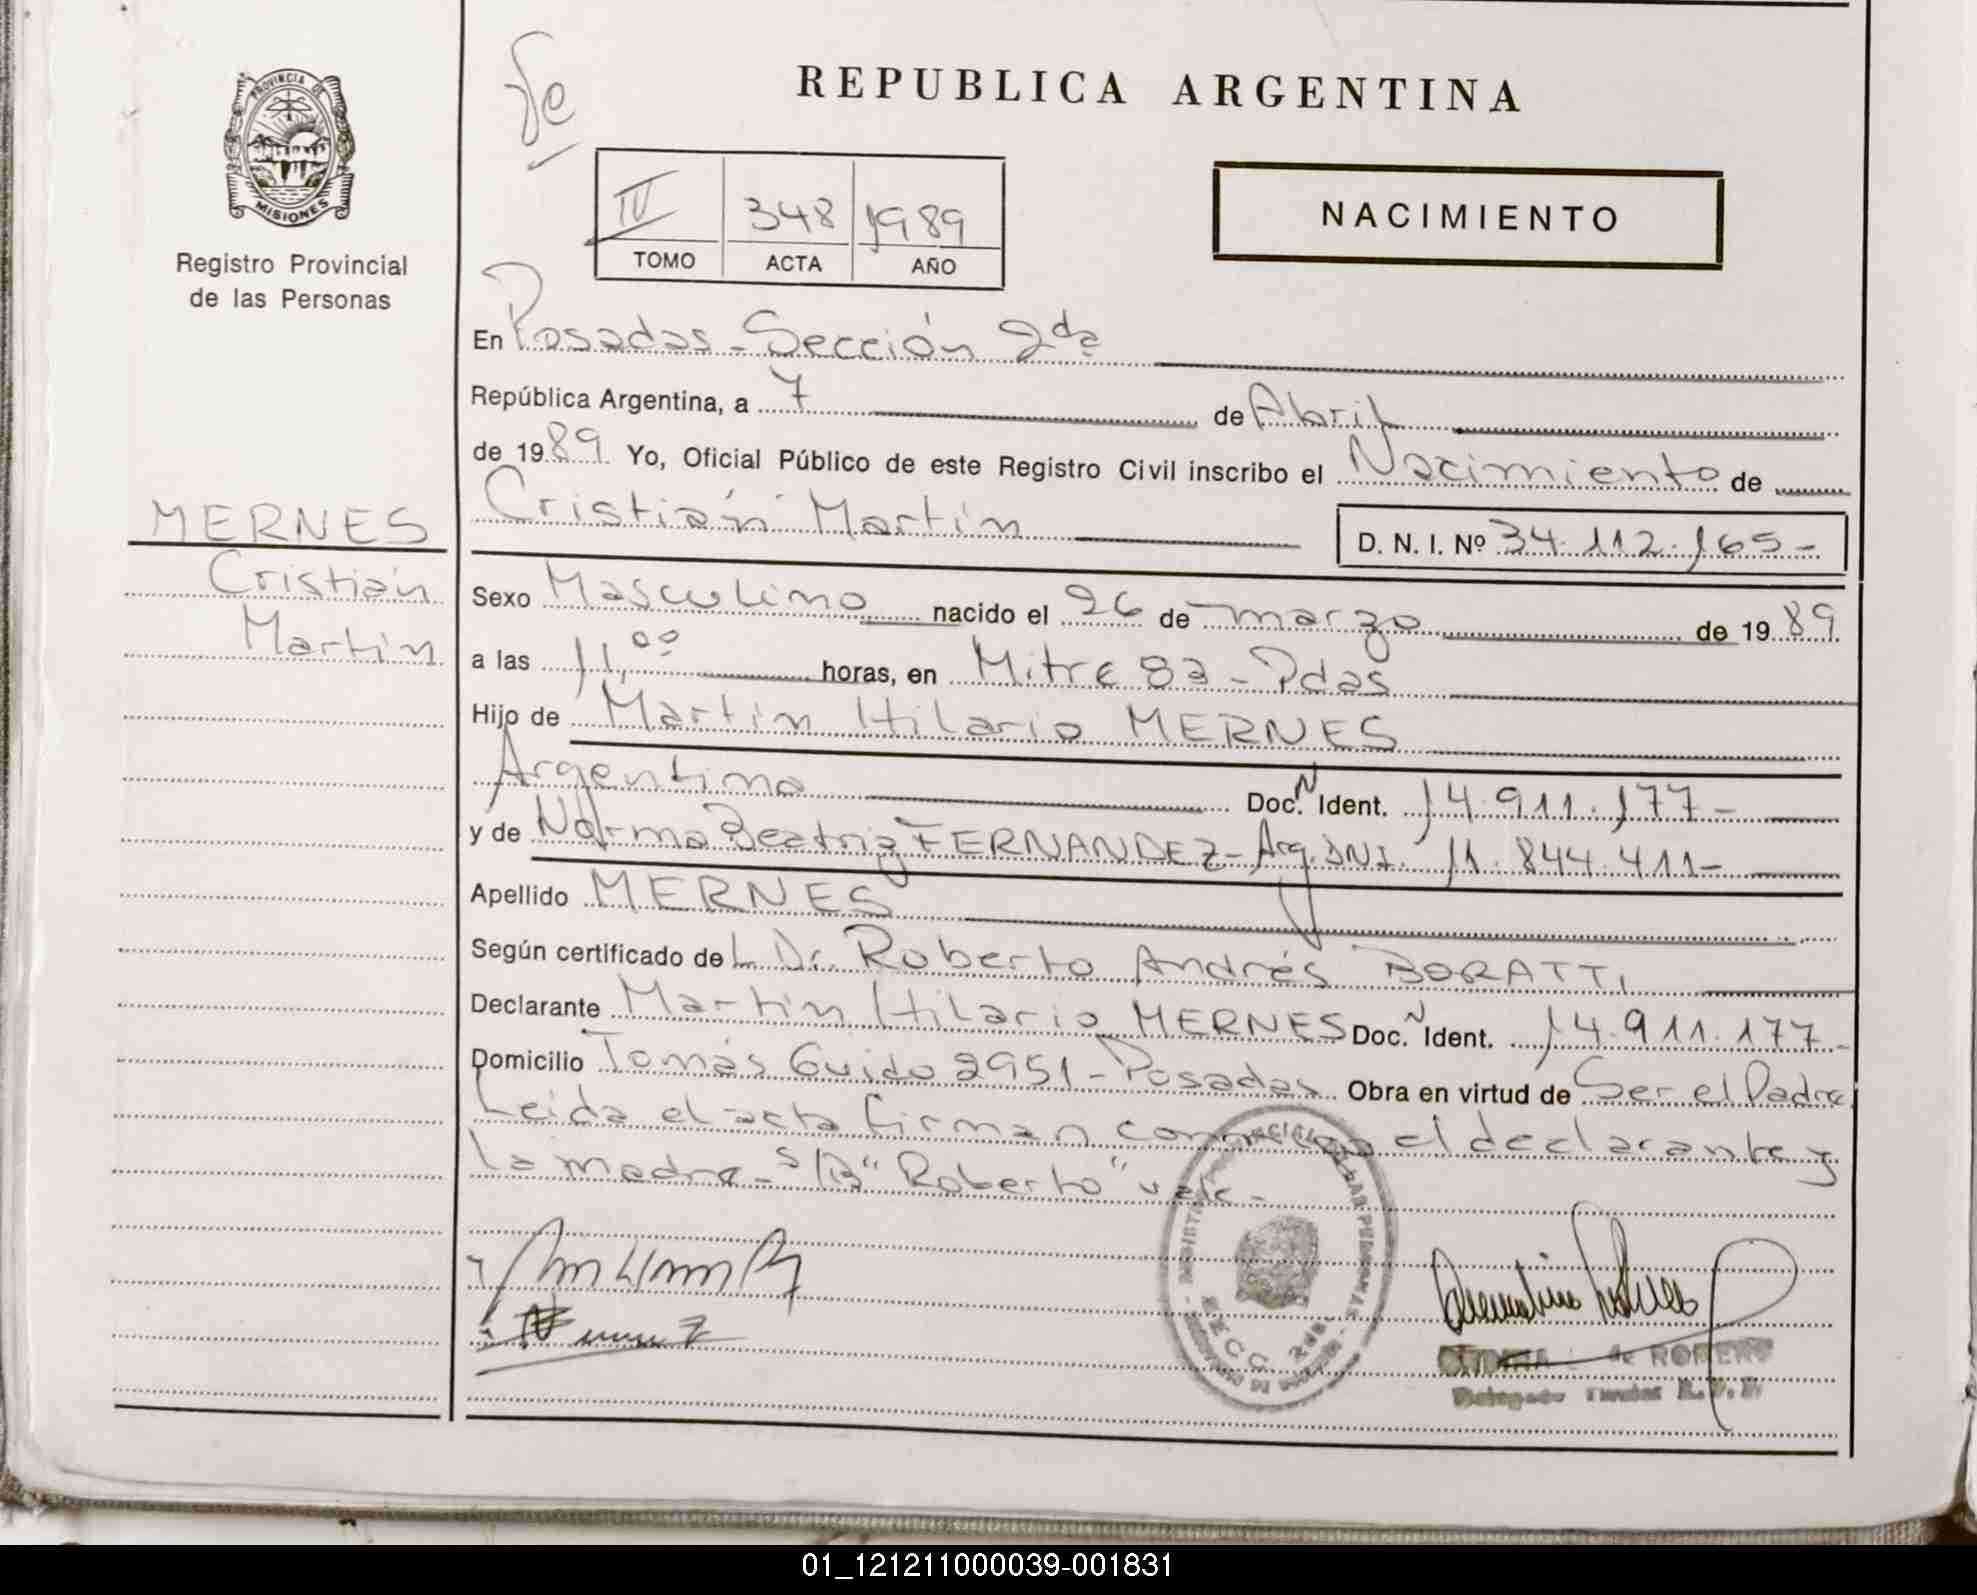 PROVINCIA DE
MISIONES
Registro Provincial
de las Personas
MERNES
Cristián
Martín
REPUBLICA ARGENTINA
IV 348 1989
TOMO ACTA AÑO
NACIMIENTO
En Posadas - Sección 2da
República Argentina, a 7 de Abril
de 1989 Yo, Oficial Público de este Registro Civil inscribo el Nacimiento de
Cristián Martín
D. N. I. Nº 34.112.165-
Sexo Masculino nacido el 26 de marzo de 1989
a las 11,00 horas, en Mitre 83 - Pdas
Hijo de Martín Hilario MERNES
Argentino Doc. N Ident. 14.911.177-
y de Norma Beatriz FERNANDEZ - Arg. DNI. 11.844.411-
Apellido MERNES
Según certificado del Dr. Roberto Andrés BORATTI
Declarante Martín Hilario MERNES Doc. N Ident. 14.911.177-
Domicilio Tomás Guido 2951 - Posadas Obra en virtud de Ser el Padre
Leida el acta firman conmigo el declarante y
la madre - S/B "Roberto" vale -
de ROMERO
Delegado Titular R.P.P.
01_121211000039-001831